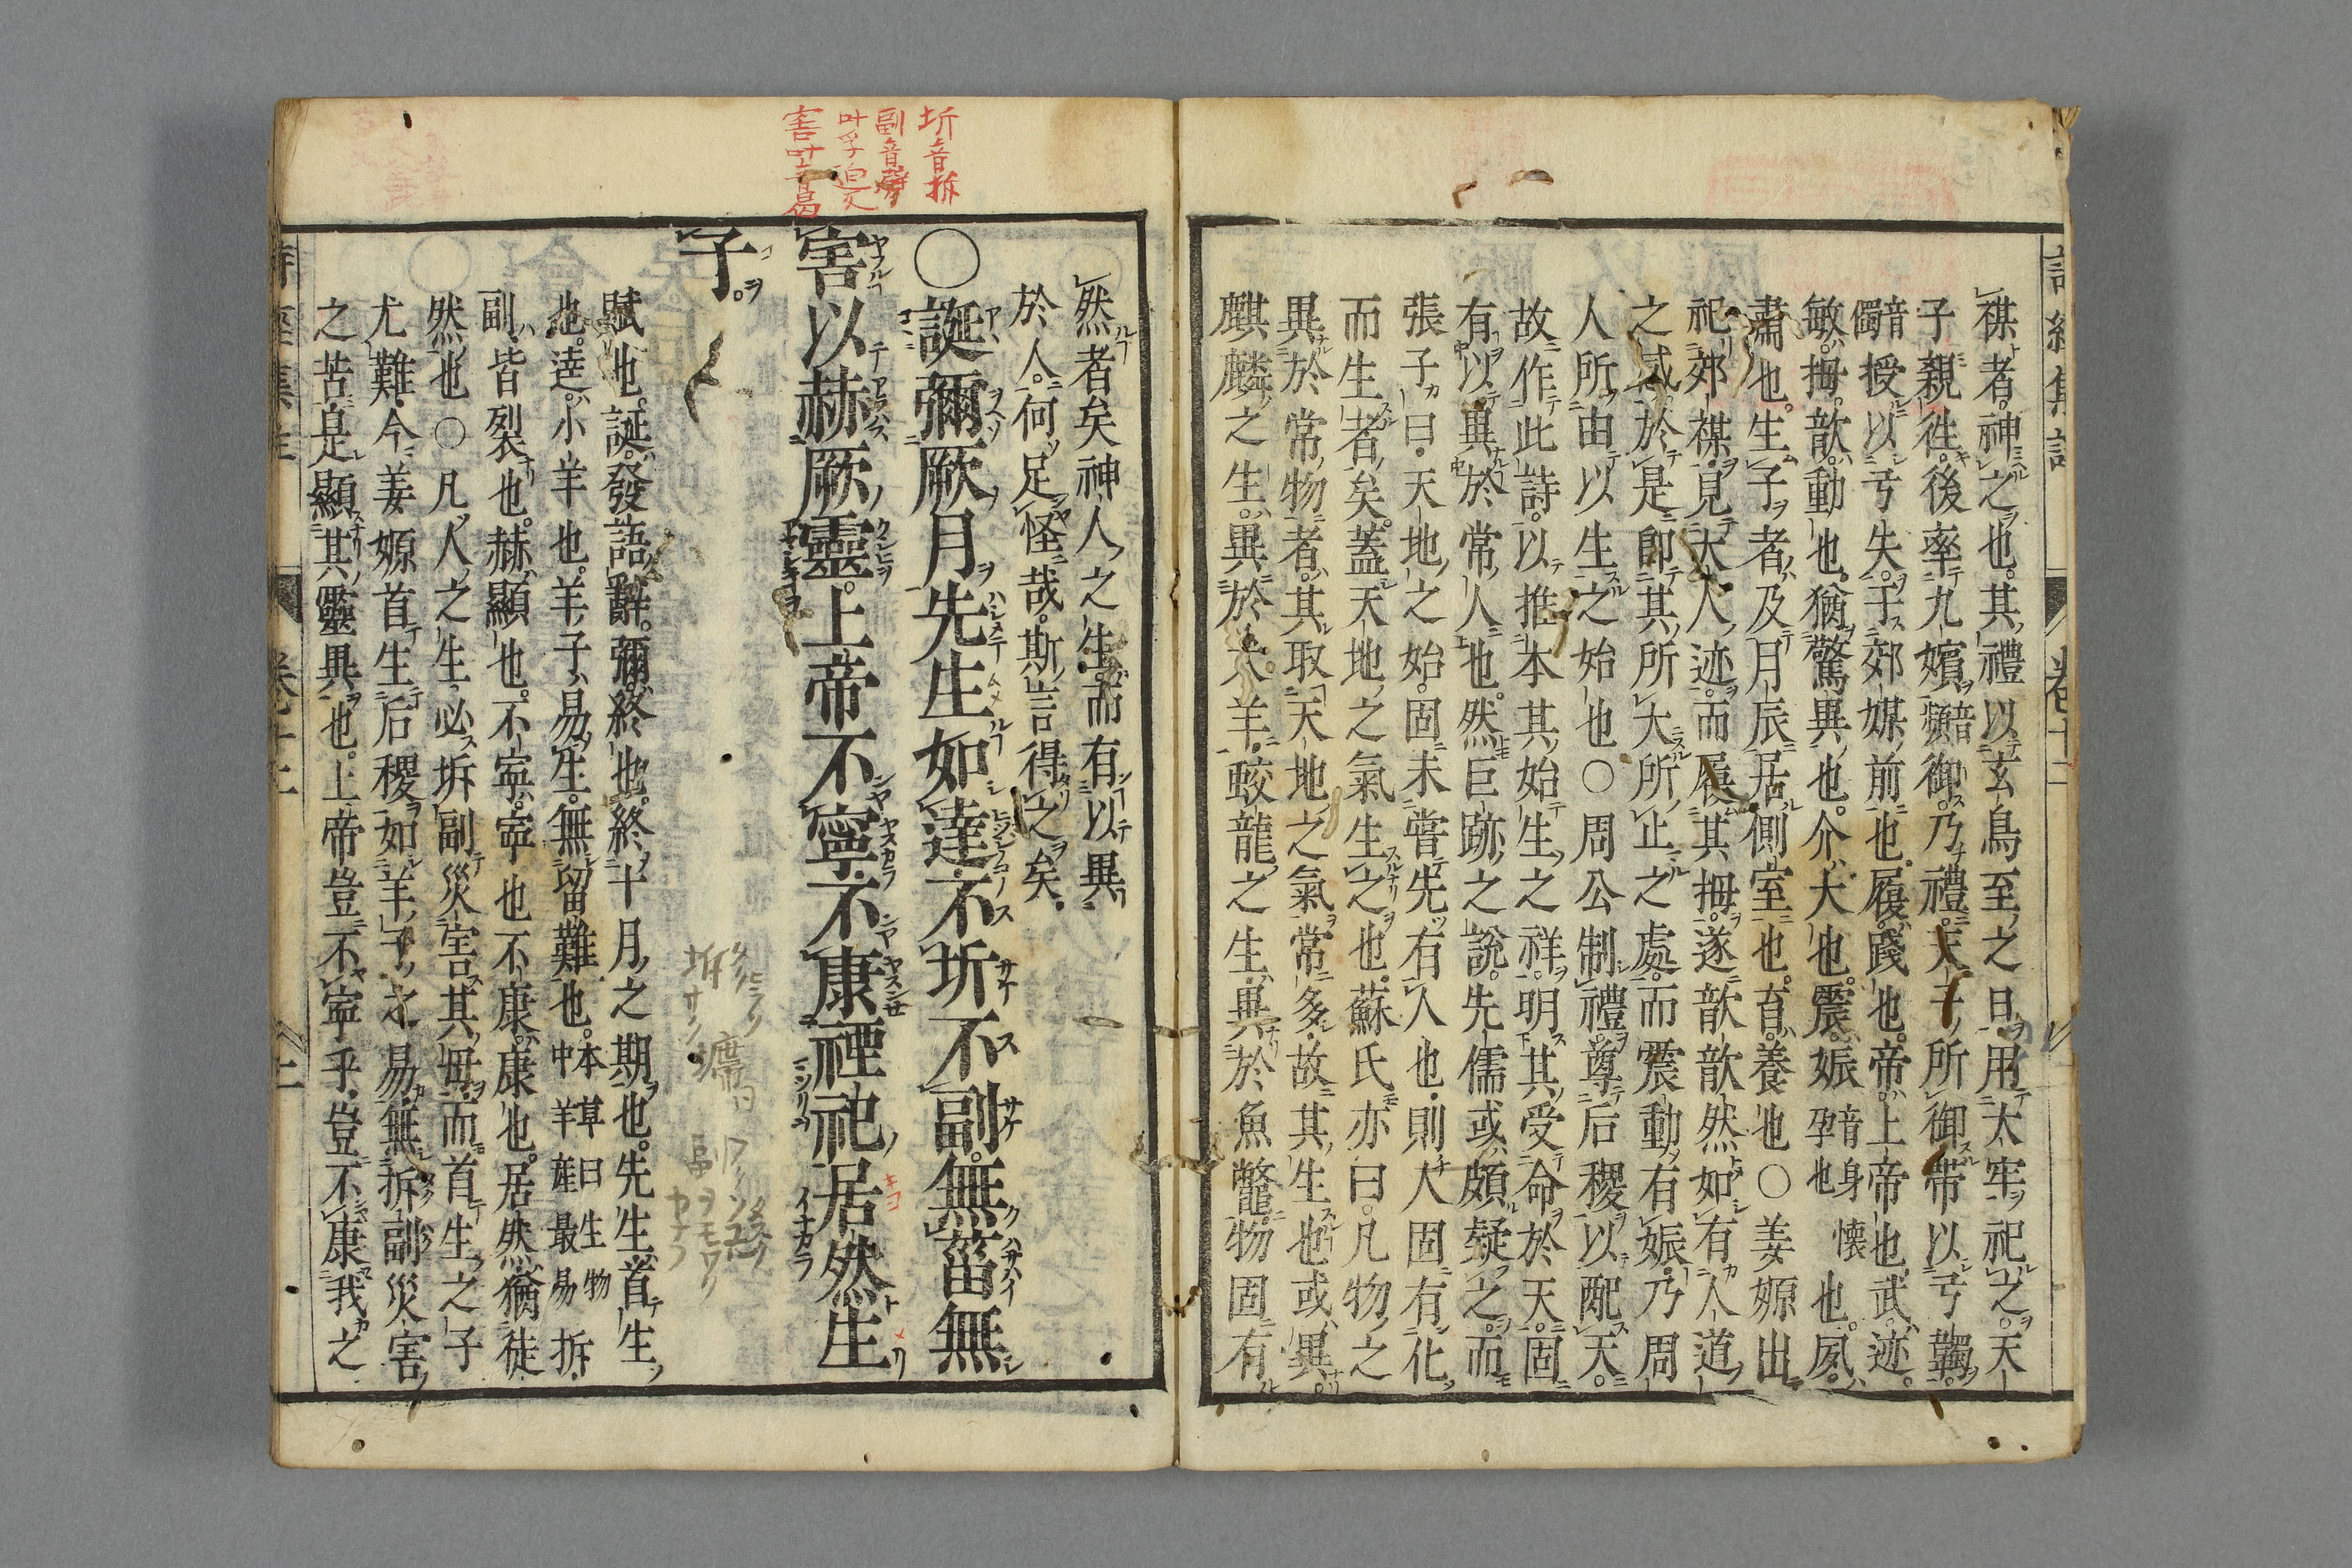 禖者神之也其禮以玄鳥至之日用太牢祀之天
子親徃後率九嬪音頻御乃禮天子所御帶以弓韣
音獨授以弓矢于郊媒前也履踐也帝上帝也武迹
敏拇歆動也猶驚異也介大也震娠音身孕也懷也夙
肅也生子者及月辰居側室也育養也〇姜嫄出
祀郊禖見大人迹而履其拇遂歆歆然如有人道
之感於是即其所大所止之處而震動有娠乃周
人所由以生之始也〇周公制禮尊后稷以配天
故作此詩以推本其始生之祥明其受命於天固
有以異於常人也然巨跡之說先儒或頗疑之而
張子曰天地之始固未嘗先有人也則人固有化
而生者矣蓋天地之氣生之也蘇氏亦曰凡物之
異於常物者其取天地之氣常多故其生也或異
麒麟之生異於犬羊蛟龍之生異於魚鼈物固有
然者矣神人之生而有以異
於人何足怪哉斯言得之矣
〇誕彌厥月先生如達不坼不副無菑無
害以赫厥靈上帝不寧不康禋祀居然生
子
賦也誕發語辭彌終也終十月之期也先生首生
也達小羊也羊子易生無留難也本草曰生物中羊産最易拆
副皆裂也赫顯也不寧寧也不康康也居然猶徒
然也〇凡人之生必坼副災害其母而首生之子
尤難今姜嫄首生后稷如羊子之易無拆副災害
之苦是顯其靈異也上帝豈不寧乎豈不康我之
坼音拆
副音
叶孚迫反
害叶音曷